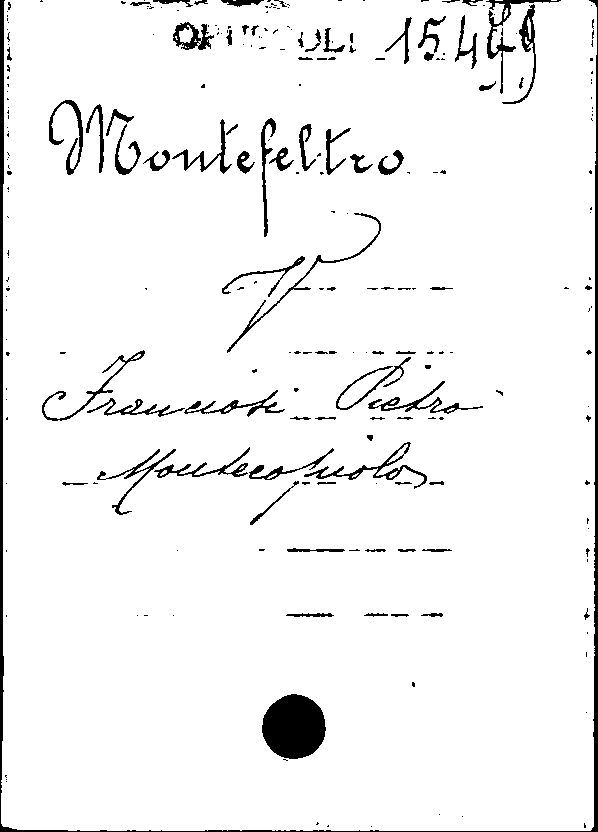 OPUSCOLI 154
Montefeltro
V
Franciosi Pietro
Montecopiolo